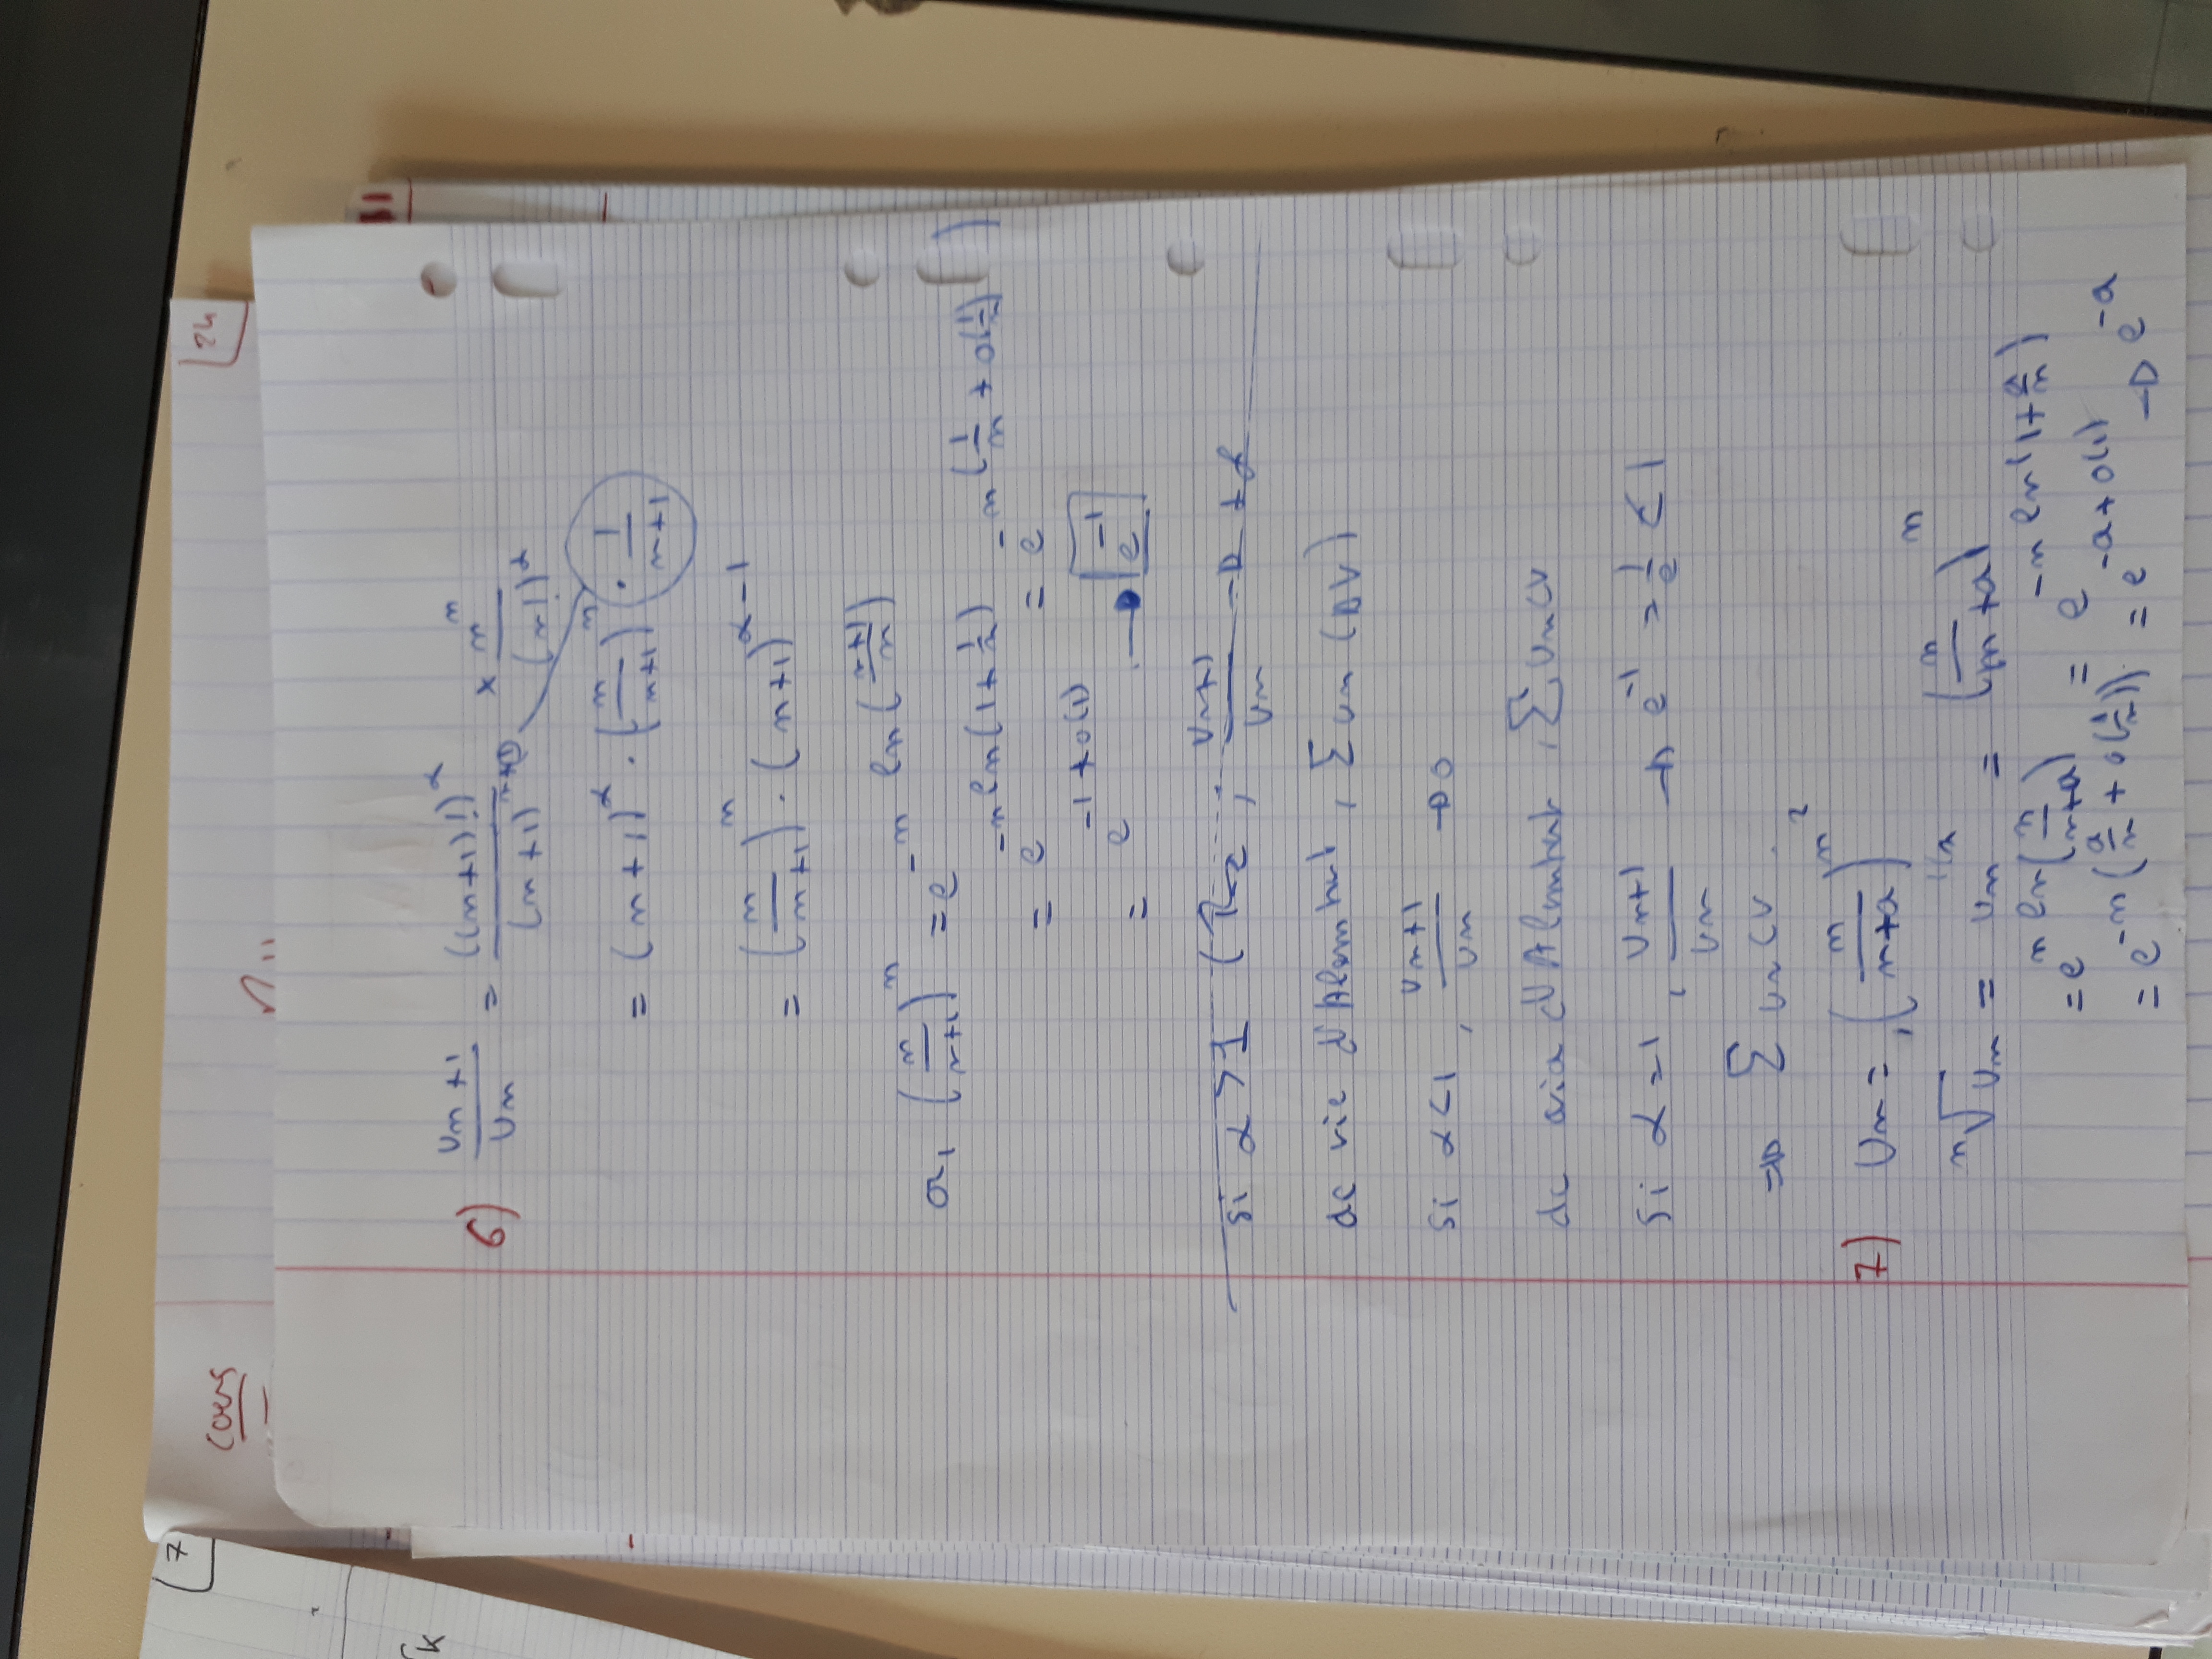 Cours
24
7
6) Un+1/Un = ((n+1)!)^α/(n+1)^(n+1) × n^n/(n!)^α
= (n+1)^α · (n/(n+1))^n · 1/(n+1)
= (n/(n+1))^n · (n+1)^(α-1)
or, (n/(n+1))^n = e^(-n ln((n+1)/n))
= e^(-n ln(1+1/n)) = e^(-n(1/n + o(1/n)))
= e^(-1+o(1)) → e^(-1)
Si α>1 Un+1/Un → +∞
dc via d'Alembert, Σ un (DV)
Si α<1, Un+1/Un → 0
dc via d'Alembert, Σ Un CV
Si α=1, Un+1/Un → e^(-1) = 1/e < 1
⇒ Σ Un CV.
7) Un = (n/(n+a))^(n²)
ⁿ√Un = Un^(1/n) = (n/(n+a))^n
= e^(n ln(n/(n+a))) = e^(-n ln(1+a/n))
= e^(-n(a/n + o(1/n))) = e^(-a+o(1)) → e^(-a)